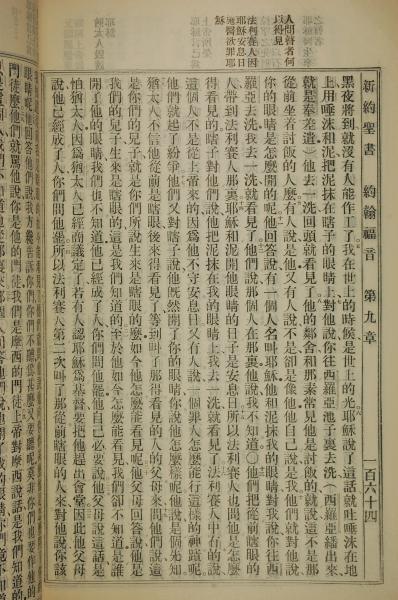 新約聖書 約翰福音 第九章 一百六十四
人問瞽者何
以得見
法利賽人因
耶穌安息日
施醫欲罪耶
黑夜將到就沒有人能作工了我在世上的時候是世上的光耶穌說了這話就唾唾沫在地
上用唾沫和泥把泥抹在瞎子的眼睛上對他說你往西羅亞池子裏去洗（西羅亞繙出來
就是奉差遣）他去一洗回頭就看見了他的鄰舍和那素常見他是討飯的就說這不是那
從前坐着討飯的人麼有人說是他又有人說不是却是像他他自己說是我他們就對他說
你的眼睛是怎麼開的呢他回答說有一個人名叫耶穌他和泥抹我的眼睛對我說你往西
羅亞去洗我去一洗就看見了他們說那個人在那裏他說我不知道〇他們把從前瞎眼的
人帶到法利賽人那裏耶穌和泥開他眼睛的日子是安息日所以法利賽人也問他是怎麼
得看見的瞎子對他們說他把泥抹在我的眼睛上我去一洗就看見了法利賽人中有的說
這個人不是從上帝來的因爲他不守安息日又有人說一個罪人怎麼能行這樣的神蹟呢
他們就起了紛爭他們又對瞎子說他旣然開了你的眼睛你說他怎麼樣呢他說是個先知
猶太人不信他從前是瞎眼後來得看見了等到叫了那得看見的人的父母來問他們說這
是你們的兒子就是你們所說生來是瞎眼的麼如今他怎麼能看見呢他父母回答說他是
我們的兒子生來是瞎眼的這是我們知道的至於他如今怎麼能看見我們却不知道是誰
開了他的眼睛我們也不知道他已經成了人你們問他罷他自己必要說他父母說這話是
怕猶太人因爲猶太人已經商議定了若有人認耶穌爲基督要把他趕出會堂因此他父母
說他已經成了人你們問他罷所以法利賽人第二次叫了那從前瞎眼的人來對他說你該
門徒麼他們就罵他說你是他的門徒我們是摩西的門徒上帝對摩西說話是我們知道的